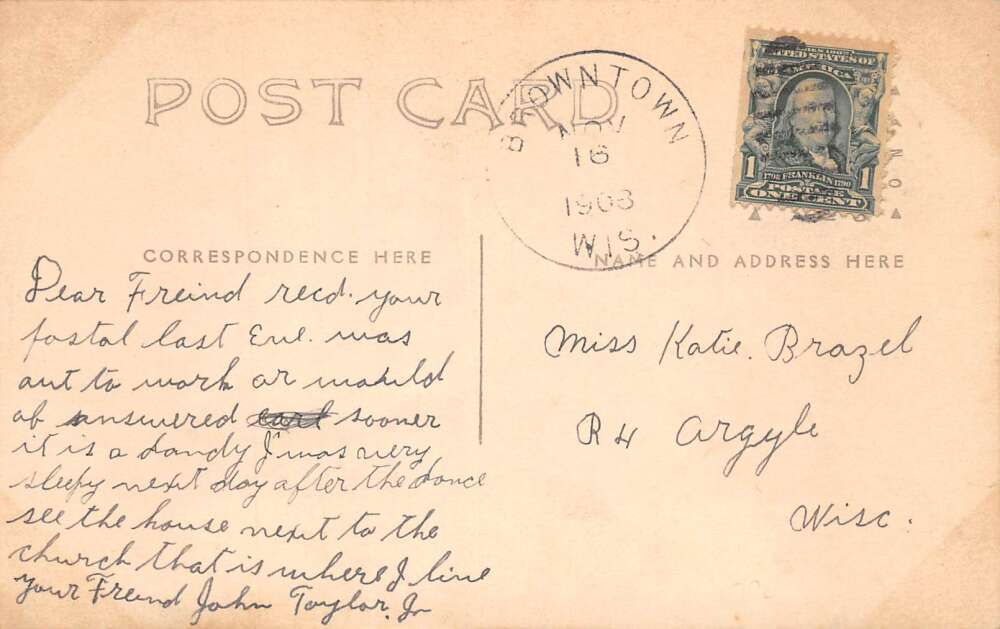 POST CARD
BROWNTOWN
NOV
16
1908
WIS.
SERIES 1902
UNITED STATES OF
AMERICA
1706 FRANKLIN 1790
1 POSTAGE 1
ONE CENT
NO
CORRESPONDENCE HERE
NAME AND ADDRESS HERE
Dear Freind recd. your
postal last Eve. was
out to work or would
of answered sooner
it is a dandy I was very
sleepy next day after the dance
see the house next to the
church that is where I live
your Freind John Taylor. Jr
Miss Katie. Brazel
R4 Argyle
Wisc.